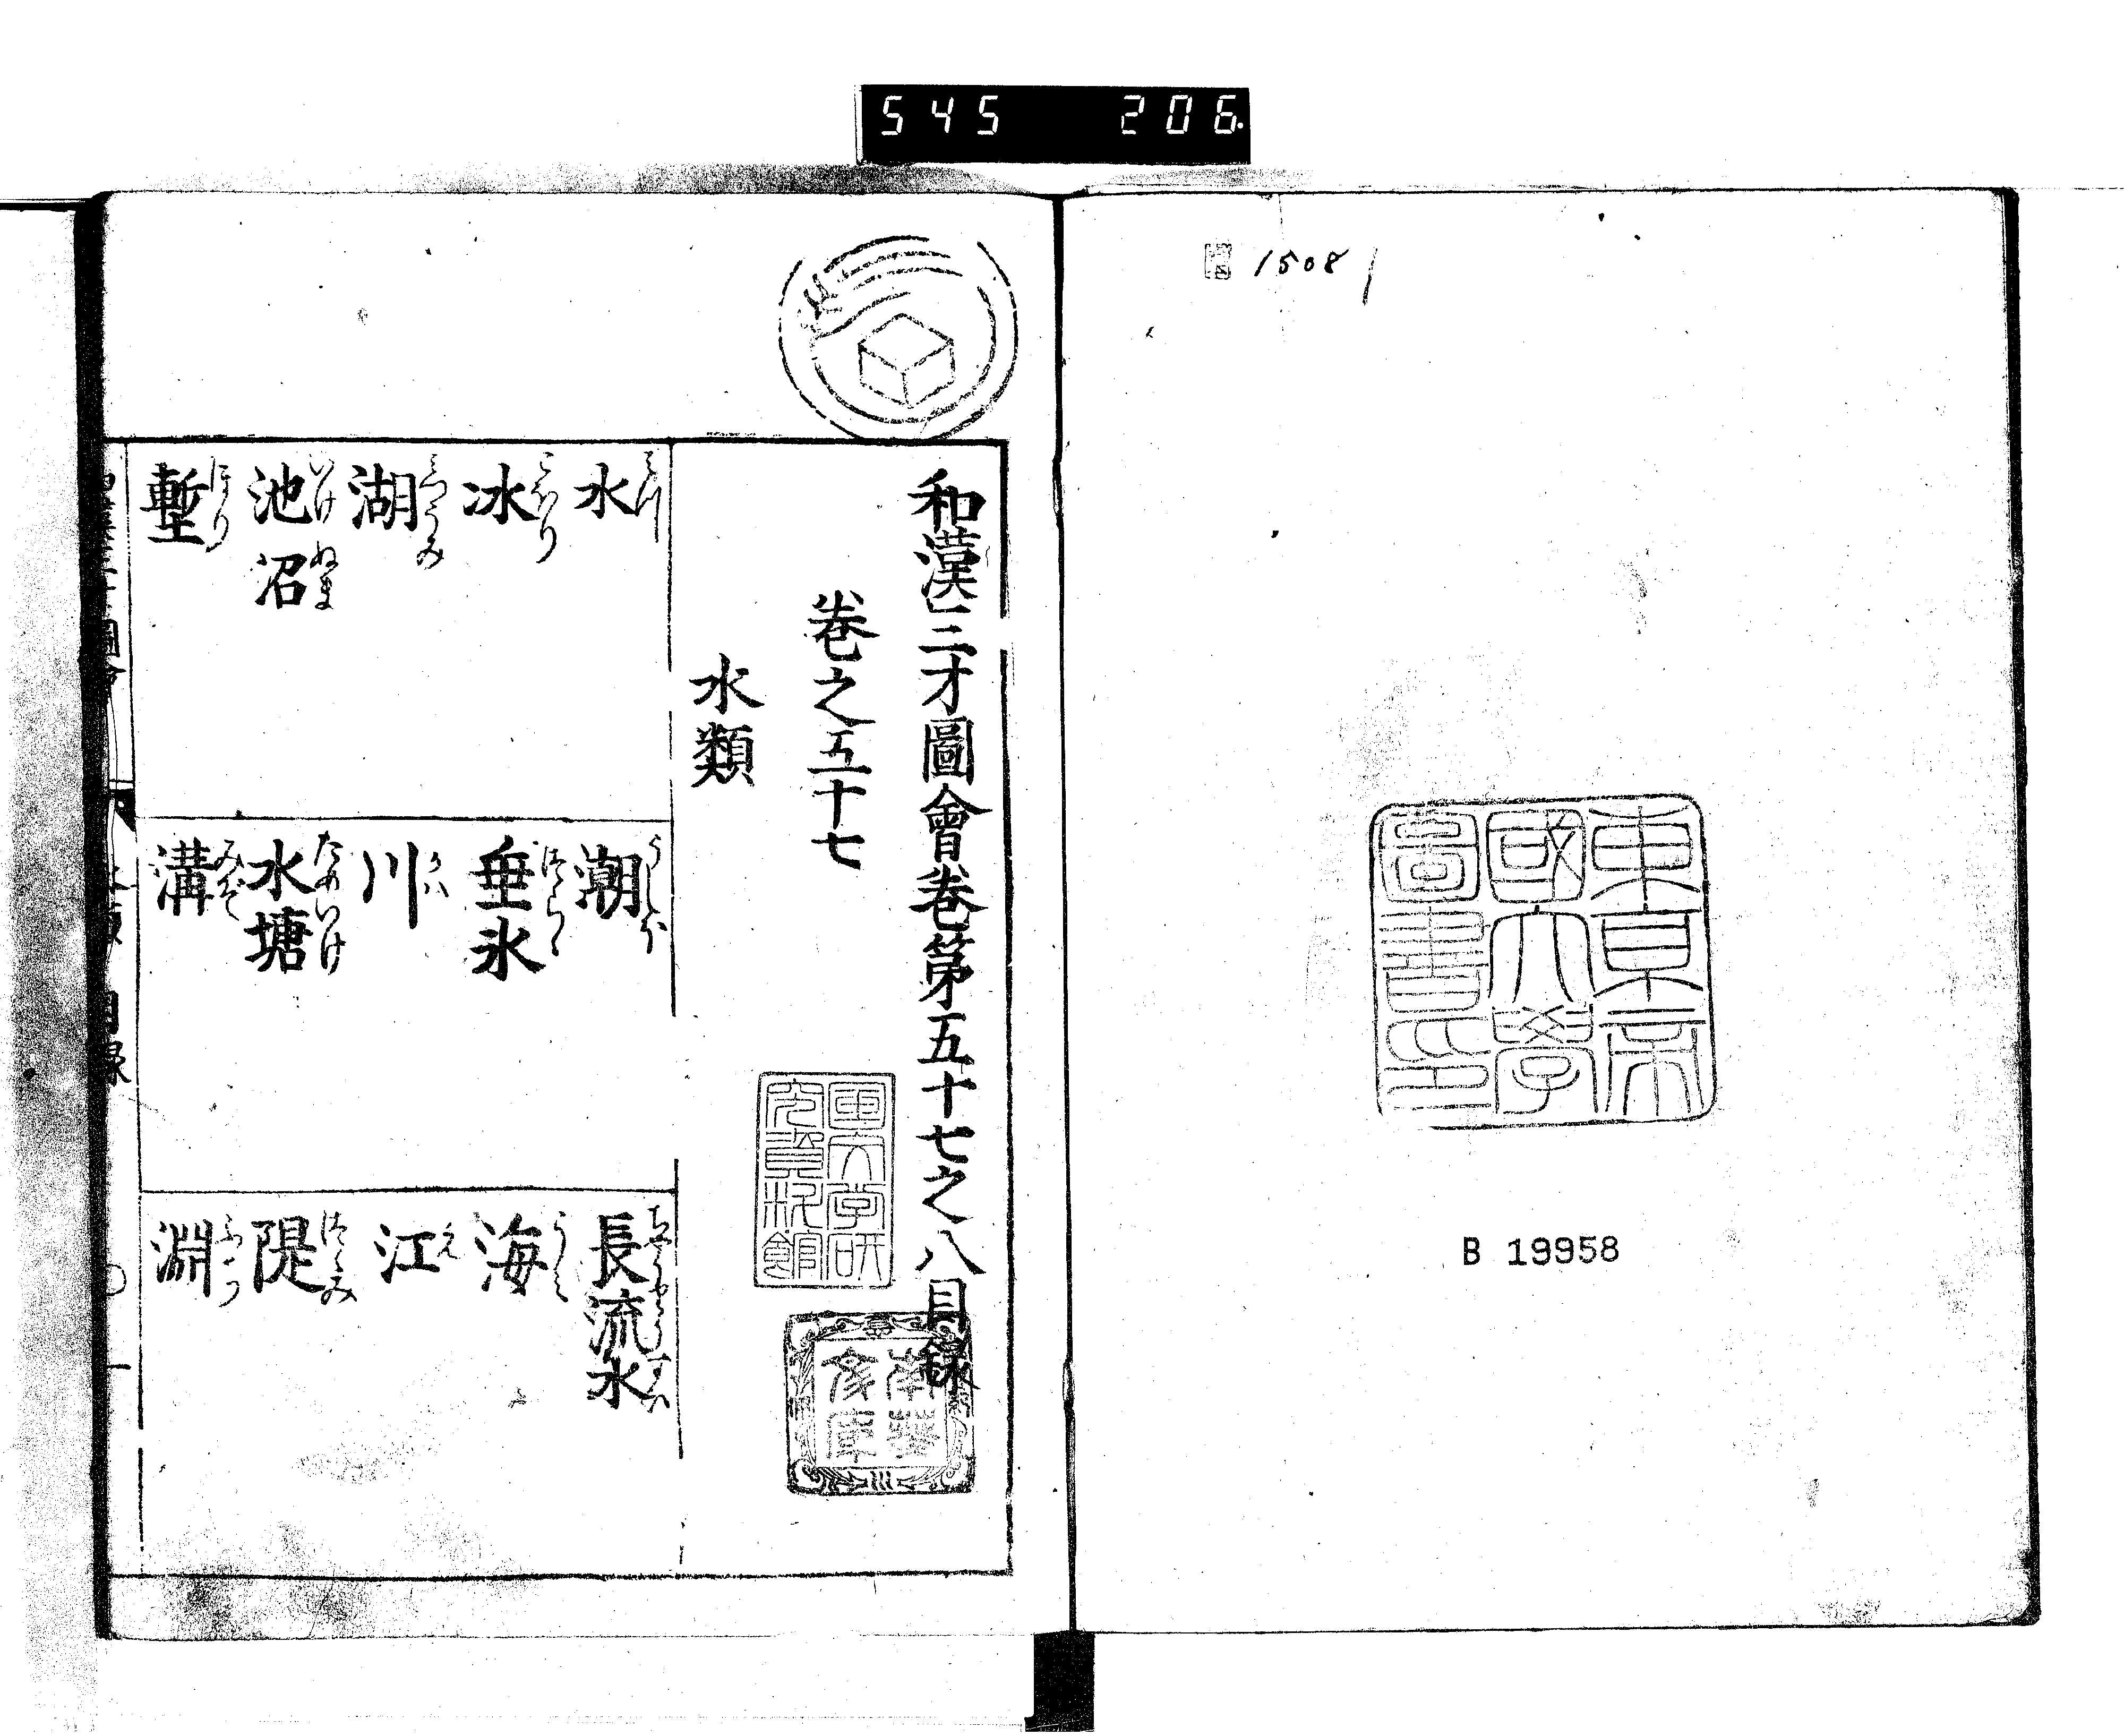 545 206.
1508
東京帝
國大學
圖書印
B 19958
和漢三才圖會卷第五十七之八目録
卷之五十七
水類
國文学研
究資料館
南葵
文庫
水 みづ
潮 うしほ
長流水 ちやうりうすい
冰 こほり
垂氷 つらら
海 うみ
湖 みづうみ
川 かは
江 え
池 いけ 沼 ぬま
水塘 ためいけ
隄 つつみ
塹 ほり
溝 みぞ
淵 ふち